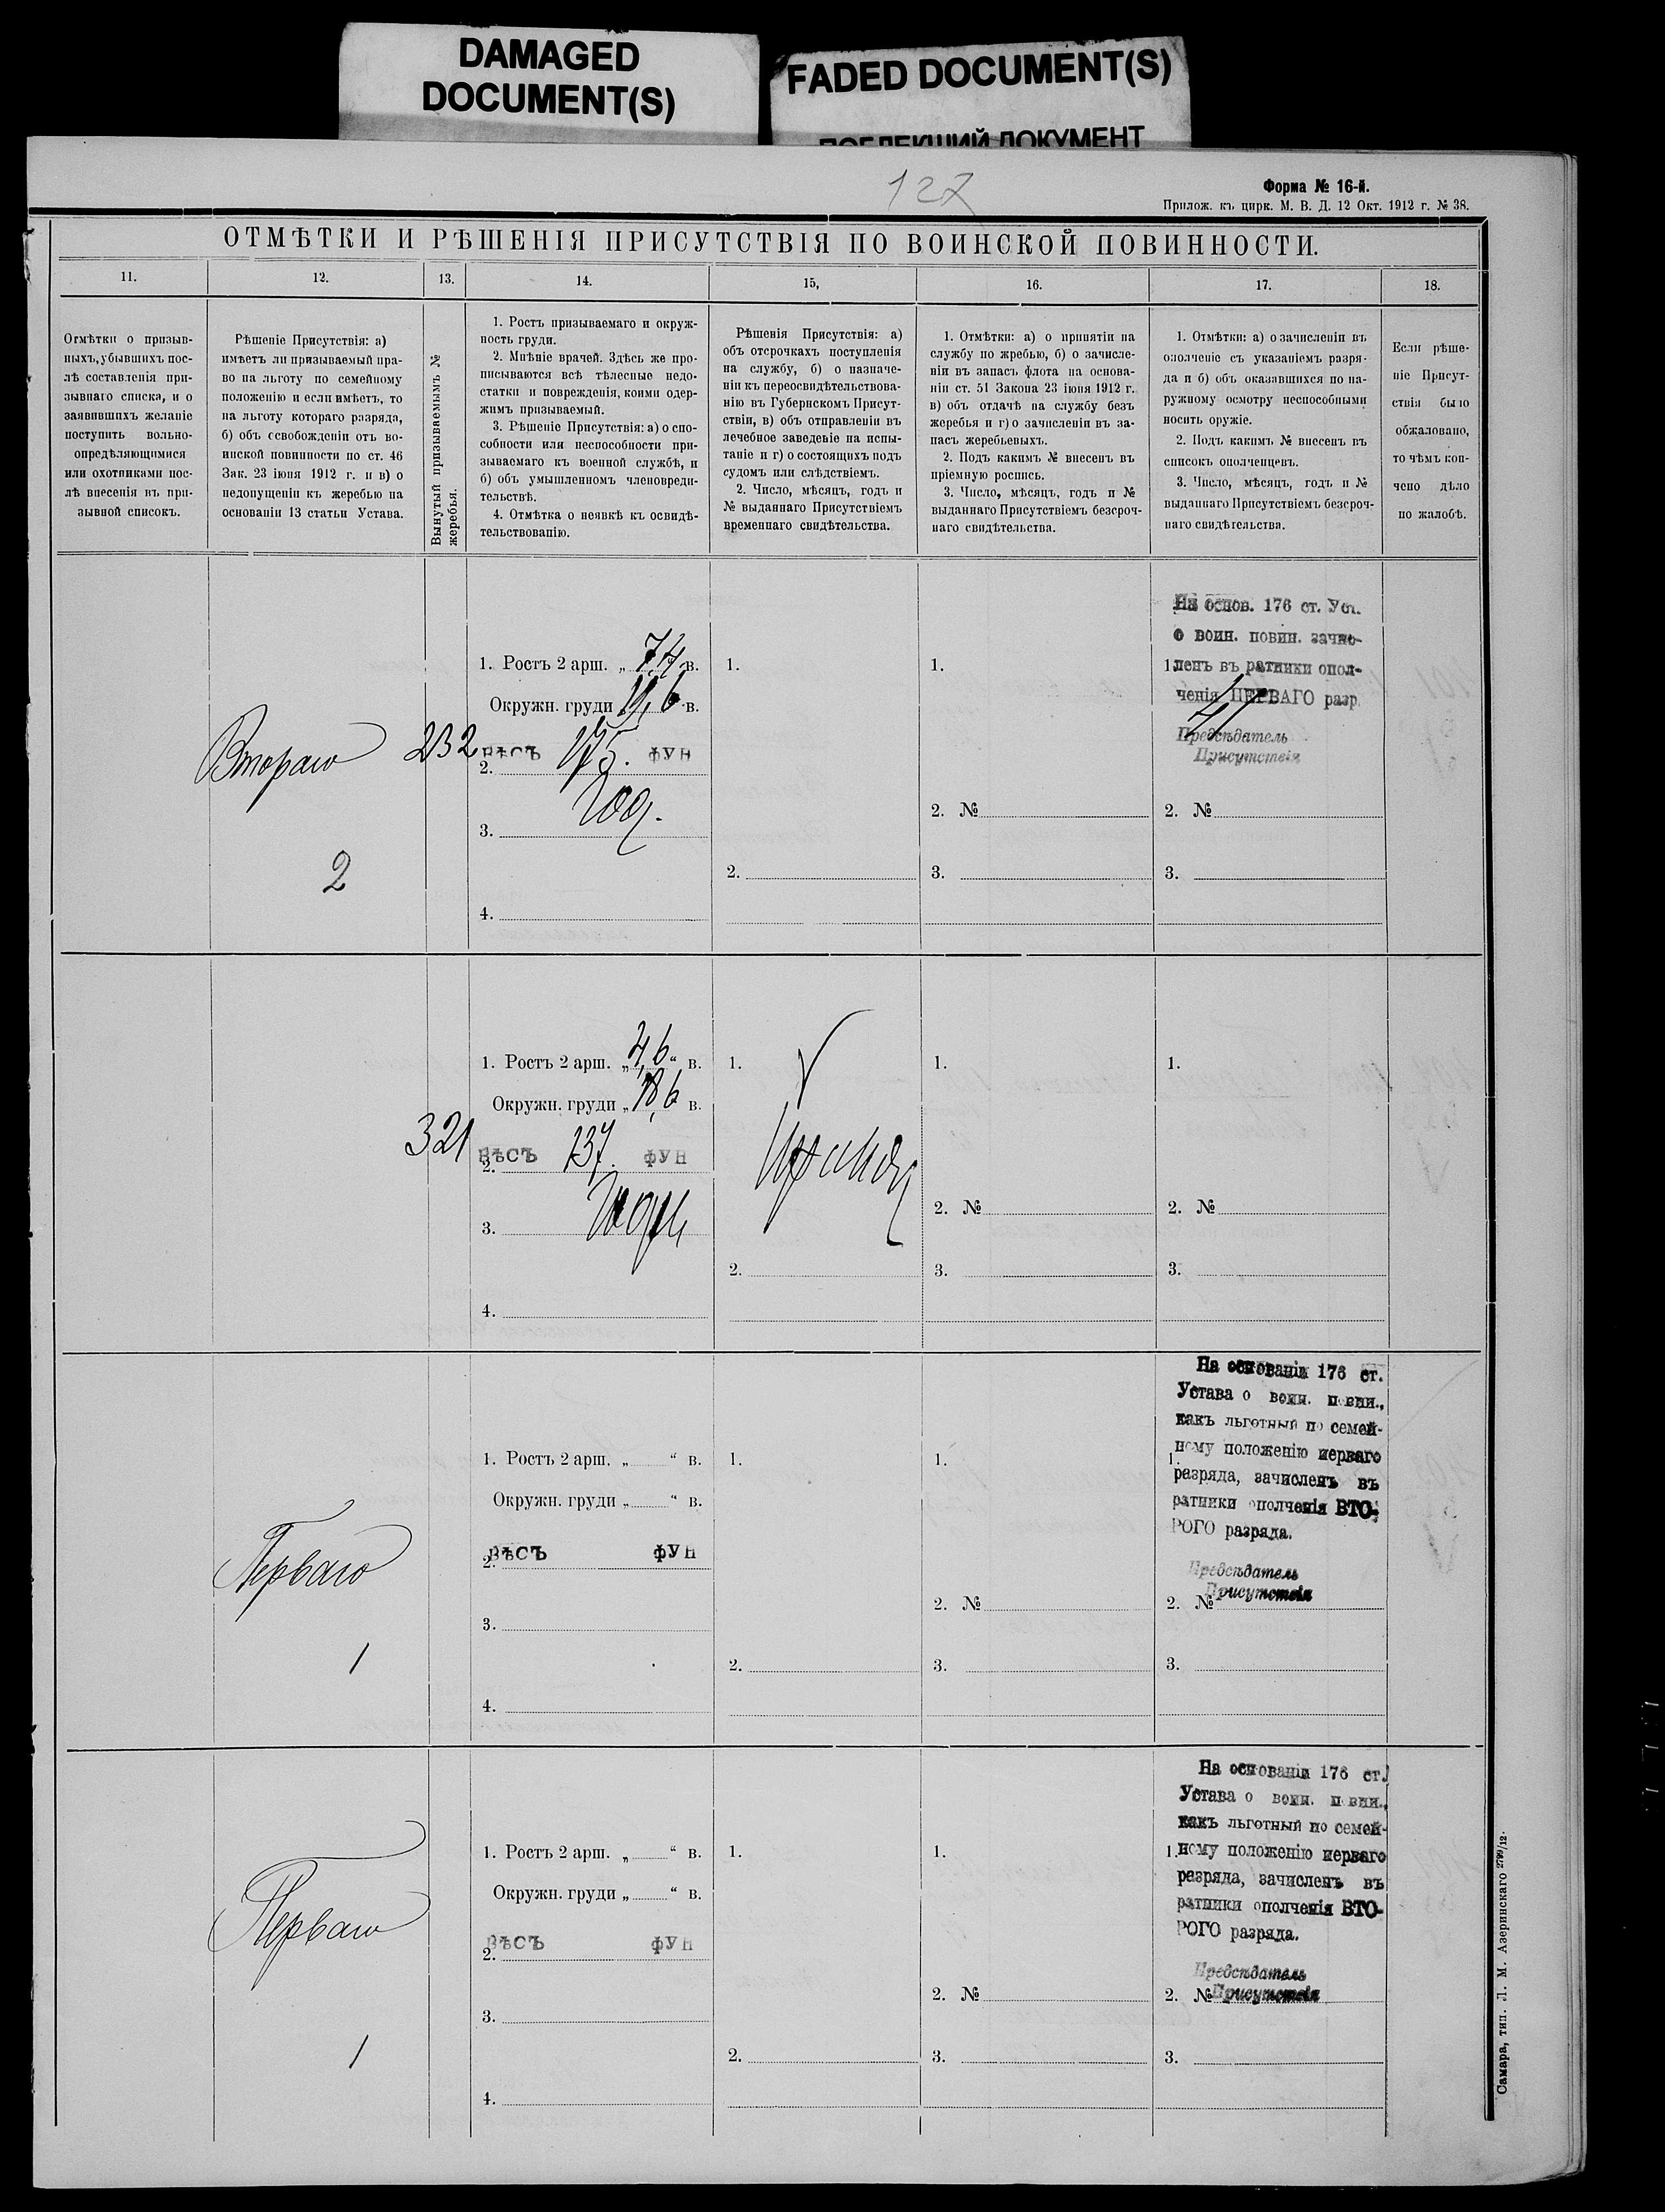 DAMAGED
DOCUMENT(S)
FADED DOCUMENT(S)
ПОБЛЕКШИЙ ДОКУМЕНТ
127
Форма № 16-й.
Прилож. къ цирк. М. В. Д. 12 Окт. 1912 г. № 38.
ОТМѢТКИ И РѢШЕНІЯ ПРИСУТСТВІЯ ПО ВОИНСКОЙ ПОВИННОСТИ.
11.
12.
13.
14.
15,
16.
17.
18.
Отмѣтки о призыв-
ныхъ, убывшихъ пос-
лѣ составленія при-
зывнаго списка, и о
заявившихъ желаніе
поступить вольно-
опредѣляющимися
или охотниками пос-
лѣ внесенія въ при-
зывной списокъ.
Рѣшеніе Присутствія: а)
имѣетъ ли призываемый пра-
во на льготу по семейному
положенію и если имѣетъ, то
на льготу котораго разряда,
б) объ освобожденіи отъ во-
инской повинности по ст. 46
Зак. 23 іюня 1912 г. и в) о
недопущеніи къ жеребью на
основаніи 13 статьи Устава.
Вынутый призываемымъ №
жеребья.
1. Ростъ призываемаго и окруж-
ность груди.
2. Мнѣніе врачей. Здѣсь же про-
писываются всѣ тѣлесные недо-
статки и поврежденія, коими одер-
жимъ призываемый.
3. Рѣшеніе Присутствія: а) о спо-
собности или неспособности при-
зываемаго къ военной службѣ, и
б) объ умышленномъ членовреди-
тельствѣ.
4. Отмѣтка о неявкѣ къ освидѣ-
тельствованію.
Рѣшенія Присутствія: а)
объ отсрочкахъ поступленія
на службу, б) о назначе-
ніи къ переосвидѣтельствова-
нію въ Губернскомъ Присут-
ствіи, в) объ отправленіи въ
лечебное заведеніе на испы-
таніе и г) о состоящихъ подъ
судомъ или слѣдствіемъ.
2. Число, мѣсяцъ, годъ и
№ выданнаго Присутствіемъ
временнаго свидѣтельства.
1. Отмѣтки: а) о принятіи на
службу по жребью, б) о зачисле-
ніи въ запасъ флота на основа-
ніи ст. 51 Закона 23 іюня 1912 г.
в) объ отдачѣ на службу безъ
жеребья и г) о зачисленіи въ за-
пасъ жеребьевыхъ.
2. Подъ какимъ № внесенъ въ
пріемную роспись.
3. Число, мѣсяцъ, годъ и №
выданнаго Присутствіемъ безсроч-
наго свидѣтельства.
1. Отмѣтки: а) о зачисленіи въ
ополченіе съ указаніемъ разря-
да и б) объ оказавшихся по на-
ружному осмотру неспособными
носить оружіе.
2. Подъ какимъ № внесенъ въ
списокъ ополченцевъ.
3. Число, мѣсяцъ, годъ и №
выданнаго Присутствіемъ безсроч-
наго свидѣтельства.
Если рѣше-
ніе Присут-
ствія было
обжаловано,
то чѣмъ кон-
чено дѣло
по жалобѣ.
Второго
2
232
1. Ростъ 2 арш. „ 7,4 в.
Окружн. груди 19,6 в.
2. ВѢСЪ 175. ФУН
3. Год.
4.
1.
2.
1.
2. №
3.
На основ. 176 ст. Уст.
о воин. повин. зачис-
1. ленъ въ ратники опол-
ченія ПЕРВАГО разр.
41
Предсѣдатель
Присутствія
2. №
3.
321
1. Ростъ 2 арш. „ 4,6 “ в.
Окружн. груди „ 18,6 в.
2. ВѢСЪ 137. ФУН
3. Годен
4.
1.
2.
1.
2. №
3.
1.
2. №
3.
Перваго
1
1. Ростъ 2 арш. „ “ в.
Окружн. груди „ “ в.
2. ВѢСЪ ФУН
3.
4.
1.
2.
1.
2. №
3.
На основаніи 176 ст.
Устава о воин. повин.,
какъ льготный по семей-
ному положенію перваго
1.
разряда, зачисленъ въ
ратники ополченія ВТО-
РОГО разряда.
Предсѣдатель
Присутствія
2. №
3.
Перваго
1
1. Ростъ 2 арш. „ “ в.
Окружн. груди „ “ в.
2. ВѢСЪ ФУН
3.
4.
1.
2.
1.
2. №
3.
На основаніи 176 ст.
Устава о воин. повин.,
какъ льготный по семей-
1. ному положенію перваго
разряда, зачисленъ въ
ратники ополченія ВТО-
РОГО разряда.
Предсѣдатель
2. № Присутствія
3.
Самара, тип. Л. М. Азеринскаго